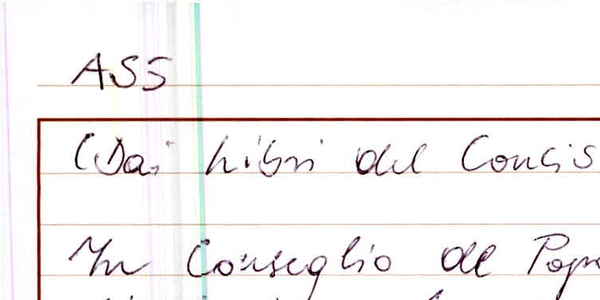 ASS
(Dai Libri del Concis
In Conseglio del Popo